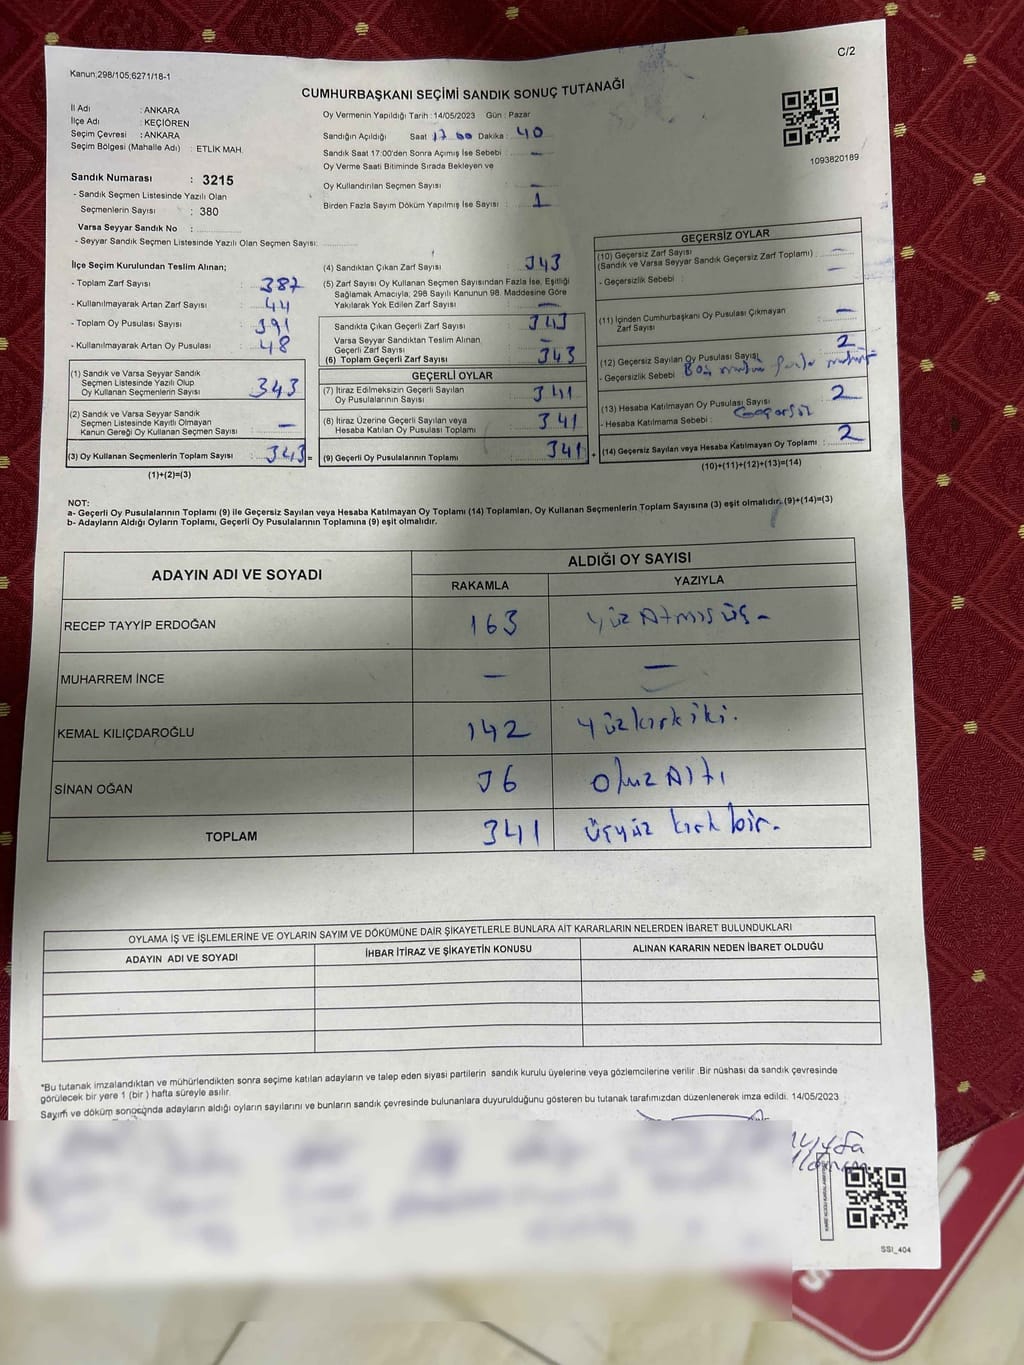 C/2
Kanun;298/105;6271/18-1
CUMHURBAŞKANI SEÇİMİ SANDIK SONUÇ TUTANAĞI
1093820189
İl Adı : ANKARA
İlçe Adı : KEÇİÖREN
Seçim Çevresi : ANKARA
Seçim Bölgesi (Mahalle Adı) : ETLİK MAH.
Sandık Numarası : 3215
- Sandık Seçmen Listesinde Yazılı Olan
Seçmenlerin Sayısı : 380
Varsa Seyyar Sandık No :
- Seyyar Sandık Seçmen Listesinde Yazılı Olan Seçmen Sayısı:
Oy Vermenin Yapıldığı Tarih : 14/05/2023 Gün : Pazar
Sandığın Açıldığı Saat 17 00 Dakika : 40
Sandık Saat 17:00'den Sonra Açımış İse Sebebi : —
Oy Verme Saati Bitiminde Sırada Bekleyen ve
Oy Kullandırılan Seçmen Sayısı : —
Birden Fazla Sayım Döküm Yapılmış İse Sayısı : 1
İlçe Seçim Kurulundan Teslim Alınan;
- Toplam Zarf Sayısı : 387
- Kullanılmayarak Artan Zarf Sayısı : 44
- Toplam Oy Pusulası Sayısı : 391
- Kullanılmayarak Artan Oy Pusulası : 48
(1) Sandık ve Varsa Seyyar Sandık
Seçmen Listesinde Yazılı Olup
Oy Kullanan Seçmenlerin Sayısı : 343
(2) Sandık ve Varsa Seyyar Sandık
Seçmen Listesinde Kayıtlı Olmayan
Kanun Gereği Oy Kullanan Seçmen Sayısı : —
(3) Oy Kullanan Seçmenlerin Toplam Sayısı : 343 =
(1)+(2)=(3)
(4) Sandıktan Çıkan Zarf Sayısı : 343
(5) Zarf Sayısı Oy Kullanan Seçmen Sayısından Fazla İse, Eşitliği
Sağlamak Amacıyla; 298 Sayılı Kanunun 98. Maddesine Göre
Yakılarak Yok Edilen Zarf Sayısı : —
Sandıkta Çıkan Geçerli Zarf Sayısı : 343
Varsa Seyyar Sandıktan Teslim Alınan
Geçerli Zarf Sayısı : —
(6) Toplam Geçerli Zarf Sayısı : 343
GEÇERLİ OYLAR
(7) İtiraz Edilmeksizin Geçerli Sayılan
Oy Pusulalarının Sayısı : 341
(8) İtiraz Üzerine Geçerli Sayılan veya
Hesaba Katılan Oy Pusulası Toplamı : 341
(9) Geçerli Oy Pusulalarının Toplamı : 341 +
GEÇERSİZ OYLAR
(10) Geçersiz Zarf Sayısı : —
(Sandık ve Varsa Seyyar Sandık Geçersiz Zarf Toplamı)
- Geçersizlik Sebebi : —
(11) İçinden Cumhurbaşkanı Oy Pusulası Çıkmayan
Zarf Sayısı : —
(12) Geçersiz Sayılan Oy Pusulası Sayısı : 2
- Geçersizlik Sebebi
(13) Hesaba Katılmayan Oy Pusulası Sayısı : 2
- Hesaba Katılmama Sebebi : Geçersiz
(14) Geçersiz Sayılan veya Hesaba Katılmayan Oy Toplamı : 2
(10)+(11)+(12)+(13)=(14)
NOT:
a- Geçerli Oy Pusulalarının Toplamı (9) ile Geçersiz Sayılan veya Hesaba Katılmayan Oy Toplamı (14) Toplamları, Oy Kullanan Seçmenlerin Toplam Sayısına (3) eşit olmalıdır. (9)+(14)=(3)
b- Adayların Aldığı Oyların Toplamı, Geçerli Oy Pusulalarının Toplamına (9) eşit olmalıdır.
ADAYIN ADI VE SOYADI
ALDIĞI OY SAYISI
RAKAMLA YAZIYLA
RECEP TAYYİP ERDOĞAN 163 Yüz Atmış üç -
MUHARREM İNCE — —
KEMAL KILIÇDAROĞLU 142 Yüzkırk iki.
SİNAN OĞAN 36 Otuz Altı
TOPLAM 341 üçyüz kırk bir.
OYLAMA İŞ VE İŞLEMLERİNE VE OYLARIN SAYIM VE DÖKÜMÜNE DAİR ŞİKAYETLERLE BUNLARA AİT KARARLARIN NELERDEN İBARET BULUNDUKLARI
ADAYIN ADI VE SOYADI İHBAR İTİRAZ VE ŞİKAYETİN KONUSU ALINAN KARARIN NEDEN İBARET OLDUĞU
*Bu tutanak imzalandıktan ve mühürlendikten sonra seçime katılan adayların ve talep eden siyasi partilerin sandık kurulu üyelerine veya gözlemcilerine verilir. Bir nüshası da sandık çevresinde
görülecek bir yere 1 (bir) hafta süreyle asılır.
Sayım ve döküm sonucunda adayların aldığı oyların sayılarını ve bunların sandık çevresinde bulunanlara duyurulduğunu gösteren bu tutanak tarafımızdan düzenlenerek imza edildi. 14/05/2023
SSI_404